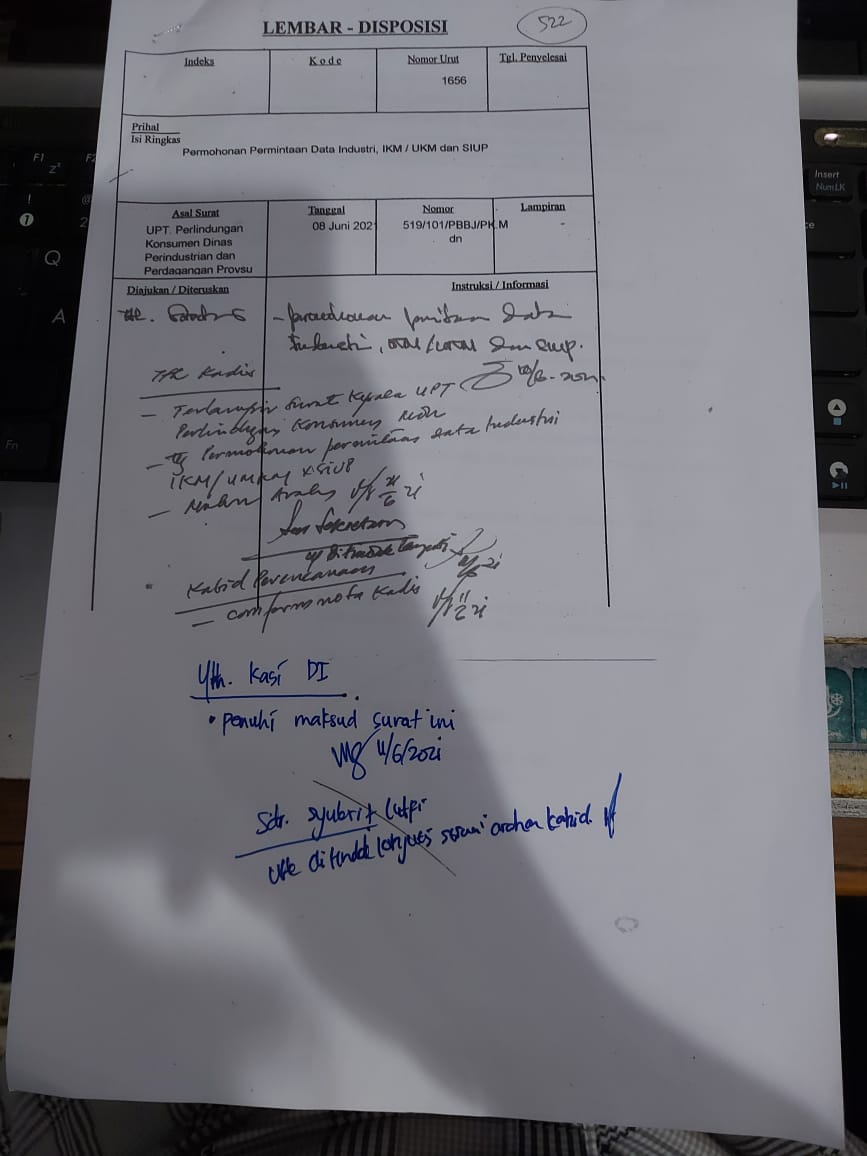 LEMBAR - DISPOSISI
522
Indeks
Kode
Nomor Urut
Tgl. Penyelesai
1656
Prihal
Isi Ringkas
Permohonan Permintaan Data Industri, IKM / UKM dan SIUP
Asal Surat
Tanggal
Nomor
Lampiran
UPT. Perlindungan
Konsumen Dinas
Perindustrian dan
Perdagangan Provsu
08 Juni 2021
519/101/PBBJ/PK.M
dn
-
Diajukan / Diteruskan
Instruksi / Informasi
data
dan SIUP.
Kadis
- Terlampir Surat Kepala UPT
Perlindungan Konsumen
- Tg Permohonan permintaan data Industri
IKM/UMKM & SIUP
- Mohon Arahan
Sekretaris
Kabid Perencanaan
- conform nota Kadis
Yth. Kasi DI
• penuhi maksud surat ini
11/6/2021
Sdr. Syubrit Lutfi
Utk ditindak lanjuti sesuai arahan kabid.
F1
Insert
NumLK
Q
A
Fn